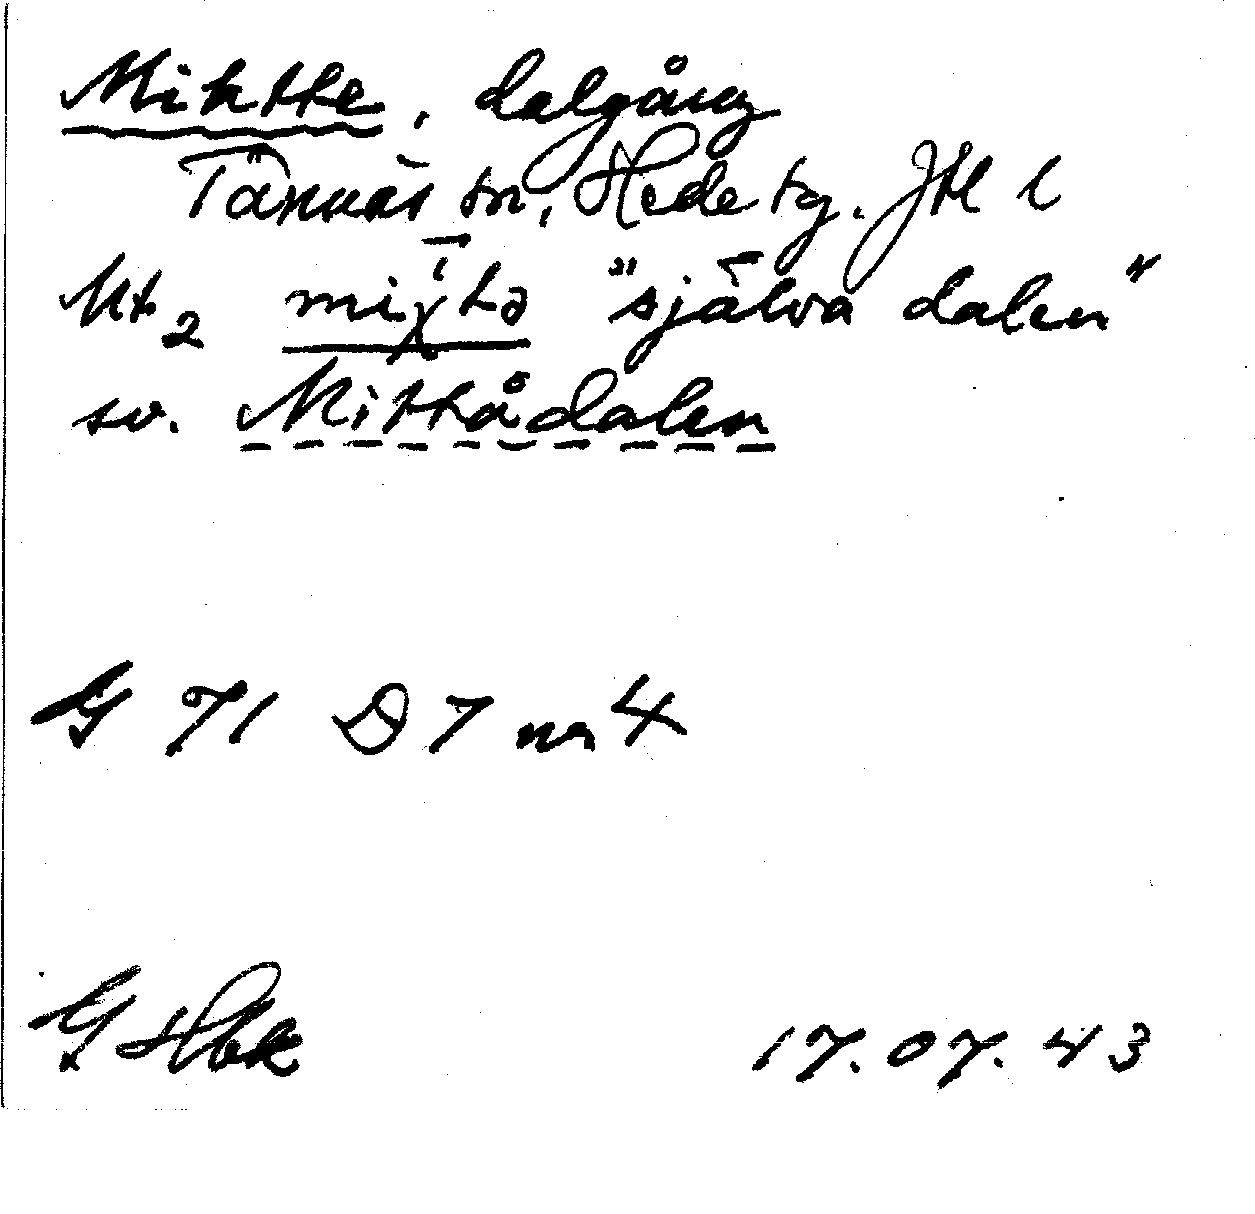 Mihtte, dalgång
Tännäs sn, Hede tg. Jtl l
Mt2 miχtə "själva dalen"
sv. Mittådalen
G 71 D 7 nr 4
G Hbk 17.07.43